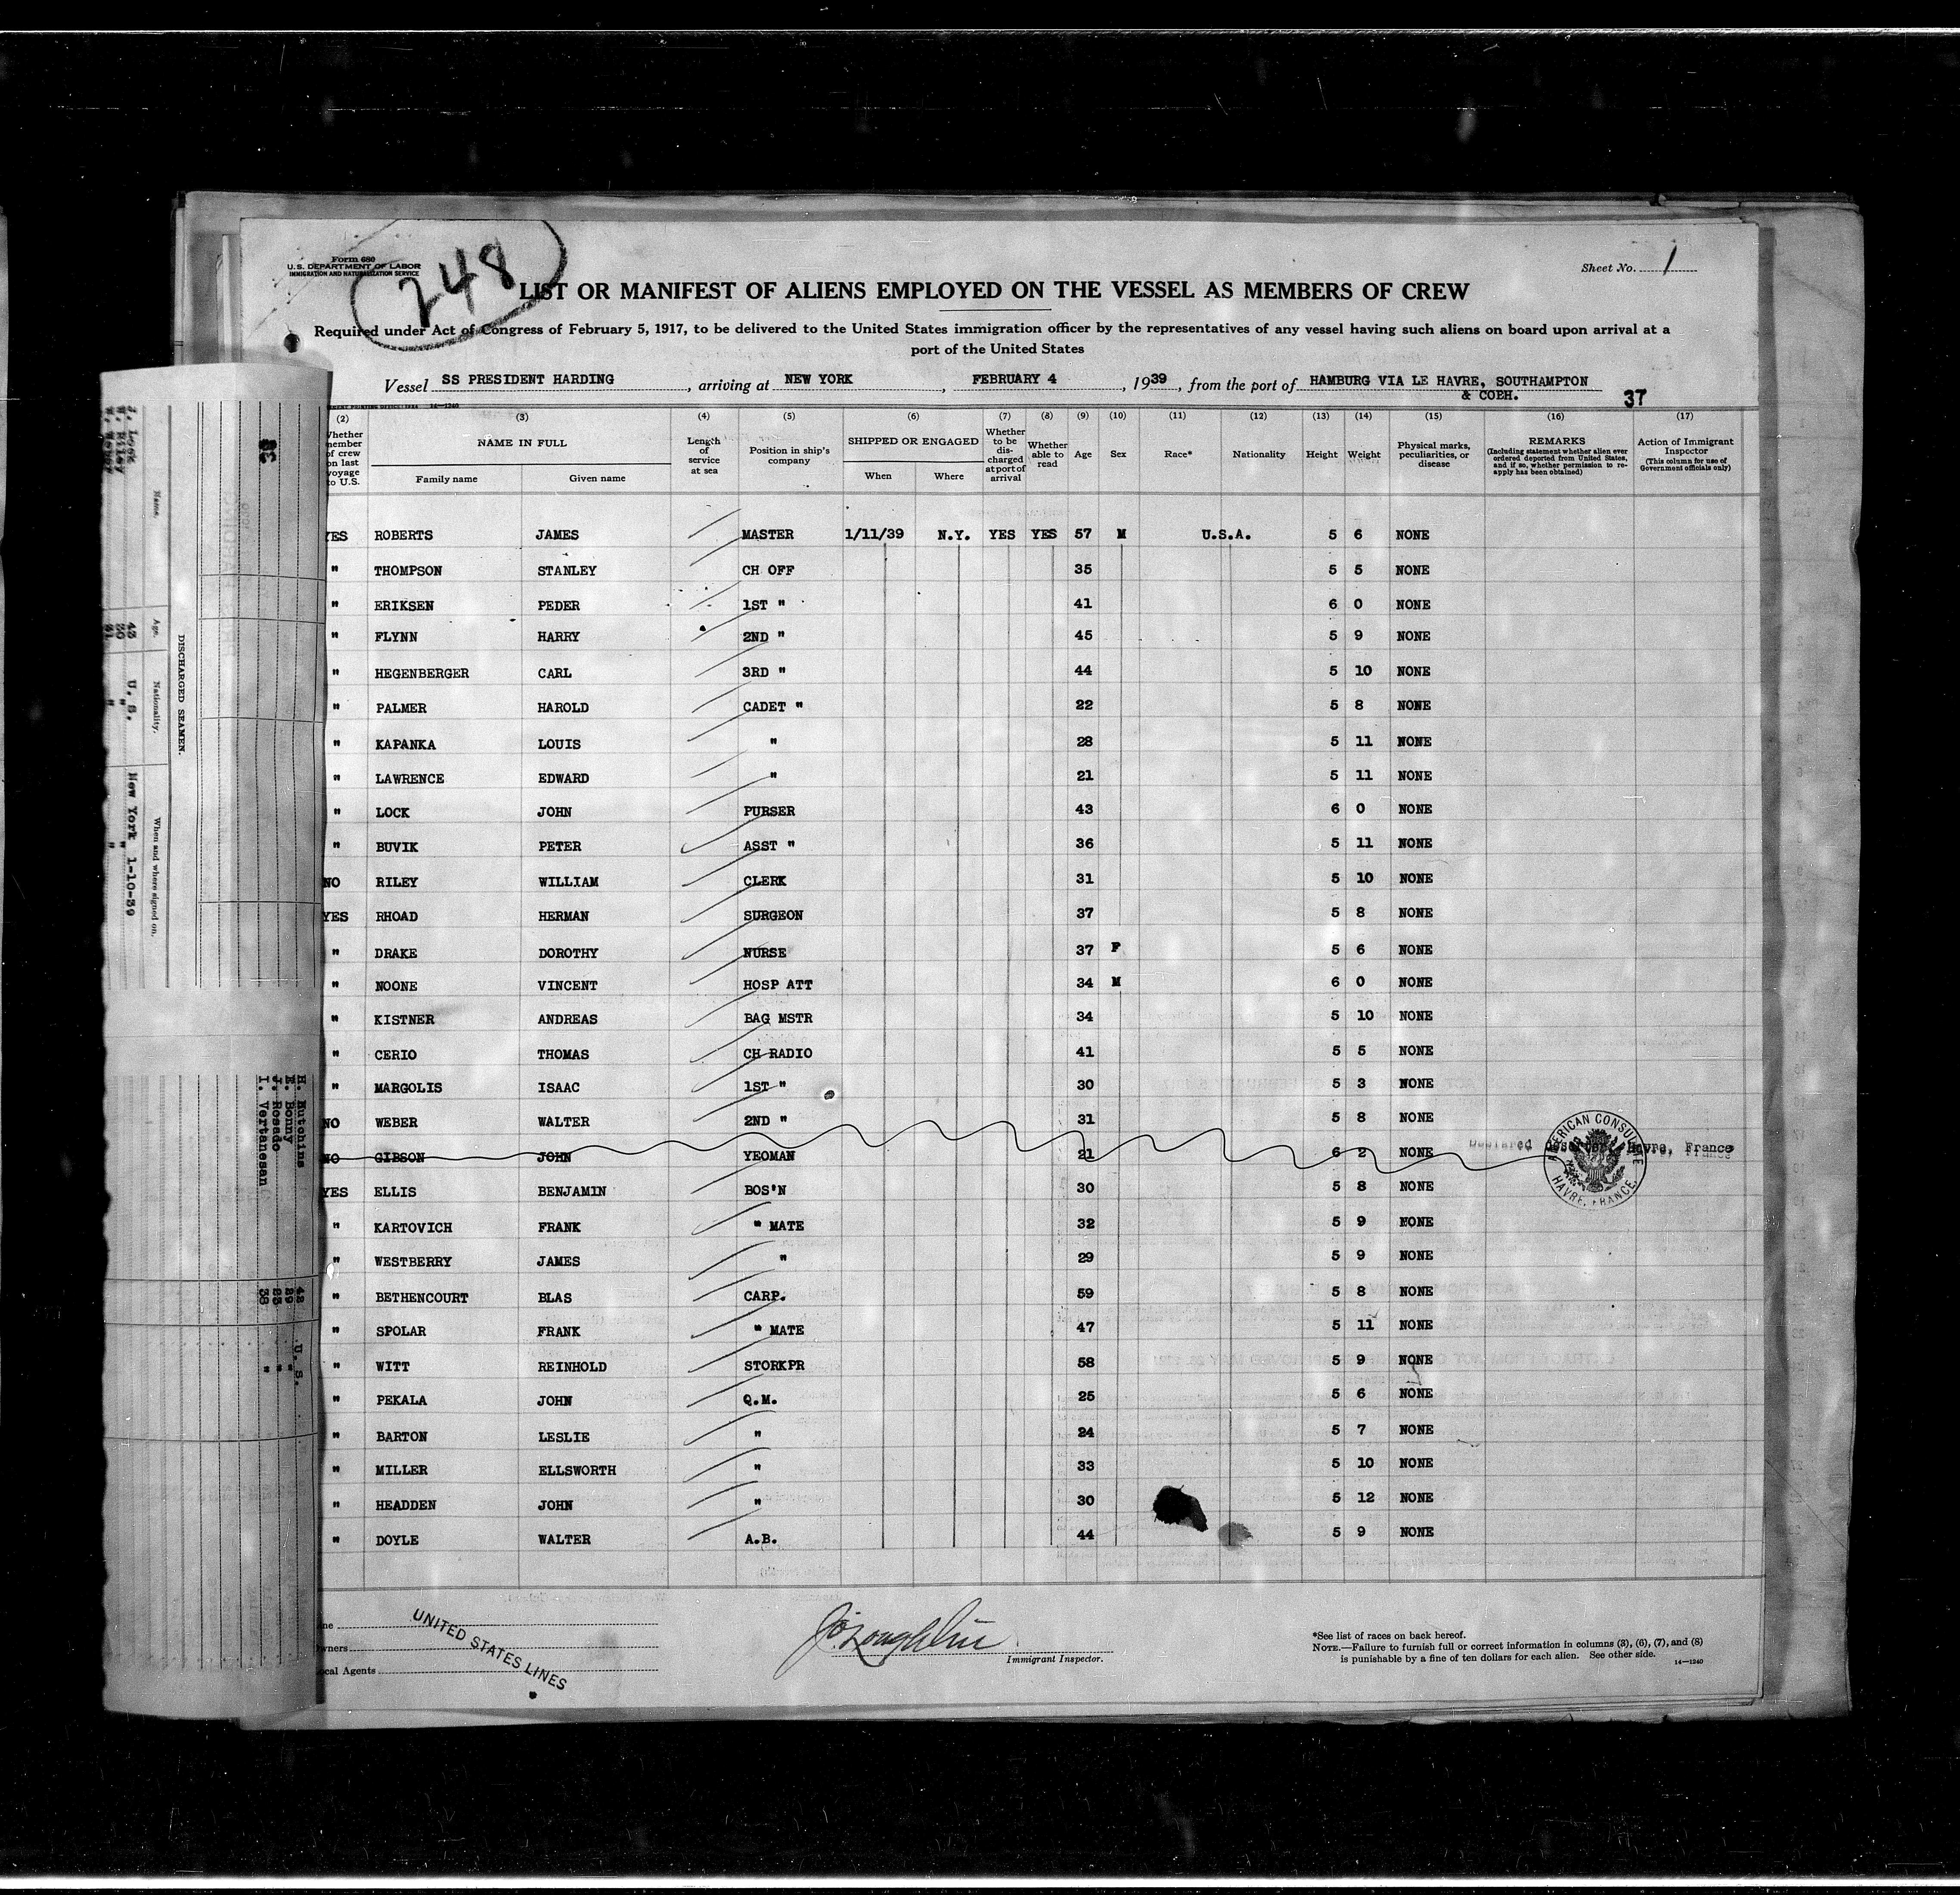 Form 680
U.S. DEPARTMENT OF LABOR
IMMIGRATION AND NATURALIZATION SERVICE
248
Sheet No. 1
LIST OR MANIFEST OF ALIENS EMPLOYED ON THE VESSEL AS MEMBERS OF CREW
Required under Act of Congress of February 5, 1917, to be delivered to the United States immigration officer by the representatives of any vessel having such aliens on board upon arrival at a
port of the United States
Vessel SS PRESIDENT HARDING, arriving at NEW YORK, FEBRUARY 4, 1939, from the port of HAMBURG VIA LE HAVRE, SOUTHAMPTON
& COBH.
37
14—1240
(2) (3) (4) (5) (6) (7) (8) (9) (10) (11) (12) (13) (14) (15) (16) (17)
Whether member of crew on last voyage to U.S.
NAME IN FULL
Family name Given name
Length of service at sea
Position in ship's company
SHIPPED OR ENGAGED
When Where
Whether to be discharged at port of arrival
Whether able to read
Age
Sex
Race*
Nationality
Height
Weight
Physical marks, peculiarities, or disease
REMARKS
(Including statement whether alien ever ordered deported from United States, and if so, whether permission to reapply has been obtained)
Action of Immigrant Inspector
(This column for use of Government officials only)
YES ROBERTS JAMES MASTER 1/11/39 N.Y. YES YES 57 M U.S.A. 5 6 NONE
" THOMPSON STANLEY CH OFF 35 5 5 NONE
" ERIKSEN PEDER 1ST " 41 6 0 NONE
" FLYNN HARRY 2ND " 45 5 9 NONE
" HEGENBERGER CARL 3RD " 44 5 10 NONE
" PALMER HAROLD CADET " 22 5 8 NONE
" KAPANKA LOUIS " 28 5 11 NONE
" LAWRENCE EDWARD " 21 5 11 NONE
" LOCK JOHN PURSER 43 6 0 NONE
" BUVIK PETER ASST " 36 5 11 NONE
NO RILEY WILLIAM CLERK 31 5 10 NONE
YES RHOAD HERMAN SURGEON 37 5 8 NONE
" DRAKE DOROTHY NURSE 37 F 5 6 NONE
" NOONE VINCENT HOSP ATT 34 M 6 0 NONE
" KISTNER ANDREAS BAG MSTR 34 5 10 NONE
" CERIO THOMAS CH RADIO 41 5 5 NONE
" MARGOLIS ISAAC 1ST " 30 5 3 NONE
NO WEBER WALTER 2ND " 31 5 8 NONE
NO GIBSON JOHN YEOMAN 21 6 2 NONE Havre, France
AMERICAN CONSULATE
HAVRE, FRANCE.
YES ELLIS BENJAMIN BOS'N 30 5 8 NONE
" KARTOVICH FRANK " MATE 32 5 9 NONE
" WESTBERRY JAMES " 29 5 9 NONE
" BETHENCOURT BLAS CARP. 59 5 8 NONE
" SPOLAR FRANK " MATE 47 5 11 NONE
" WITT REINHOLD STORKPR 58 5 9 NONE
" PEKALA JOHN Q.M. 25 5 6 NONE
" BARTON LESLIE " 24 5 7 NONE
" MILLER ELLSWORTH " 33 5 10 NONE
" HEADDEN JOHN " 30 5 12 NONE
" DOYLE WALTER A.B. 44 5 9 NONE
UNITED STATES LINES
Immigrant Inspector.
*See list of races on back hereof.
NOTE.—Failure to furnish full or correct information in columns (3), (6), (7), and (8)
is punishable by a fine of ten dollars for each alien. See other side.
14—1240
DISCHARGED SEAMEN.
Name. Age. Nationality. When and where signed on.
J. Lock 43 U.S. New York 1-10-39
W. Riley
H. Hutchins 42 U.S.
E. Bonny 29 "
J. Rosado "
I. Vertanesan 38 "